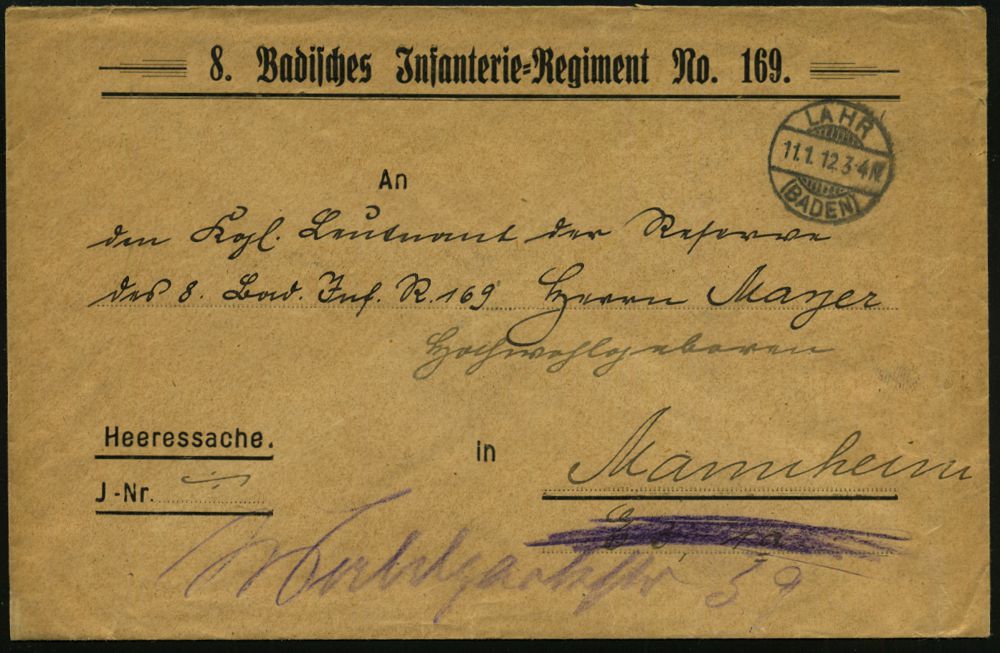 8. Badisches Infanterie=Regiment No. 169.
LAHR
11.1.12.3-4N.
(BADEN)
An
den Kgl. Leutnant der Reserve
des 8. Bad. Inf. R. 169 Herrn Mayer
Hochwohlgeboren
Heeressache.
in Mannheim
J.-Nr.
59